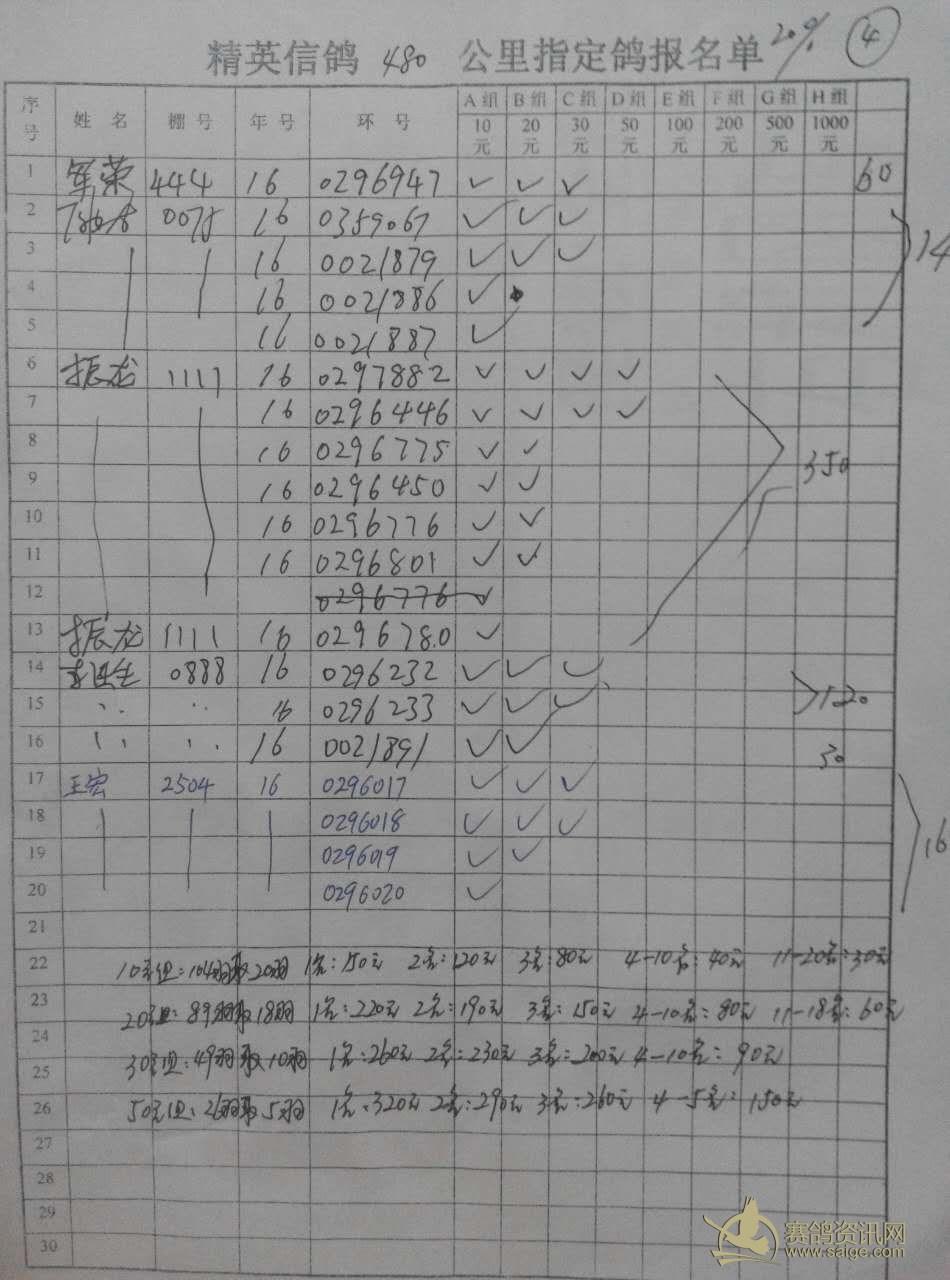 精英信鸽 480 公里指定鸽报名单 20% ④
序号 姓名 棚号 年号 环号 A组 B组 C组 D组 E组 F组 G组 H组
10元 20元 30元 50元 100元 200元 500元 1000元
1 军荣 444 16 0296947 ✓ ✓ ✓ 60
2 16 0359067 ✓ ✓ ✓
3 16 0021879 ✓ ✓ ✓ 14
4 16 0021886 ✓
5 16 0021887 ✓
6 振龙 1111 16 0297882 ✓ ✓ ✓ ✓
7 16 0296446 ✓ ✓ ✓ ✓
8 16 0296775 ✓ ✓
9 16 0296450 ✓ ✓ 350
10 16 0296776 ✓ ✓
11 16 0296801 ✓ ✓
12 0296776 ✓
13 振龙 1111 16 0296780 ✓
14 0888 16 0296232 ✓ ✓ ✓
15 16 0296233 ✓ ✓ ✓ 120
16 16 0021891 ✓ ✓ 30
17 王宏 2504 16 0296017 ✓ ✓ ✓
18 0296018 ✓ ✓ ✓
19 0296019 ✓ ✓ 16
20 0296020 ✓
21
22 10元组:104羽取20羽 1名:150元 2名:120元 3名:80元 4-10名:40元 11-20名:30元
23 20元组:89羽取18羽 1名:220元 2名:190元 3名:150元 4-10名:80元 11-18名:60元
24
25 30元组:49羽取10羽 1名:260元 2名:230元 3名:200元 4-10名:90元
26 50元组:26羽取5羽 1名:320元 2名:290元 3名:260元 4-5名:150元
27
28
29
30
赛鸽资讯网
www.saige.com